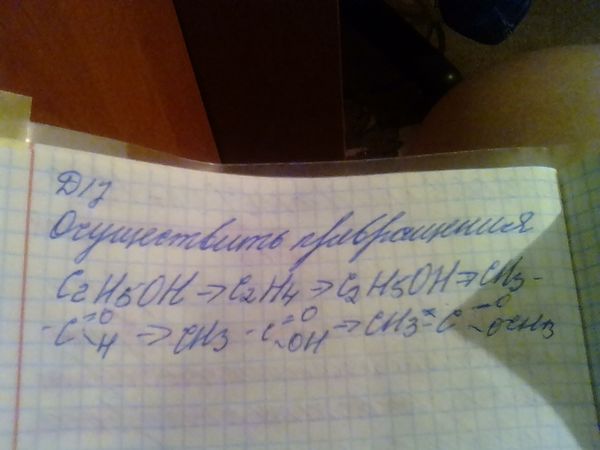 Д/з
Осуществить превращения
C2H5OH → C2H4 → C2H5OH → CH3-
-C=O-H → CH3-C=O-OH → CH3-C=O-OCH3